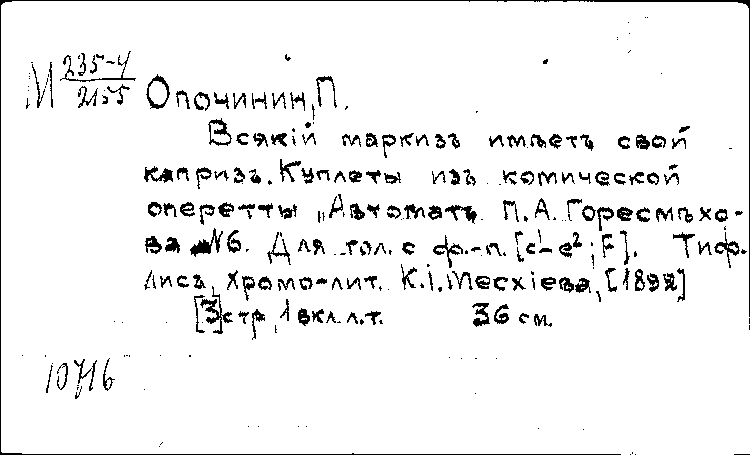 М 235-4/2155 Опочинин, П.
Всякій маркизъ имѣетъ свой
капризъ. Куплеты изъ комической
оперетты „Автоматъ П.А. Горесмѣхо-
ва №6. Для гол. с ф.-п. [c¹-e²; F]. Тиф-
лисъ, Хромо-лит. К.І. Месхіева, [1892]
[3]стр, 1 вкл. л. т. 36 см.
10716